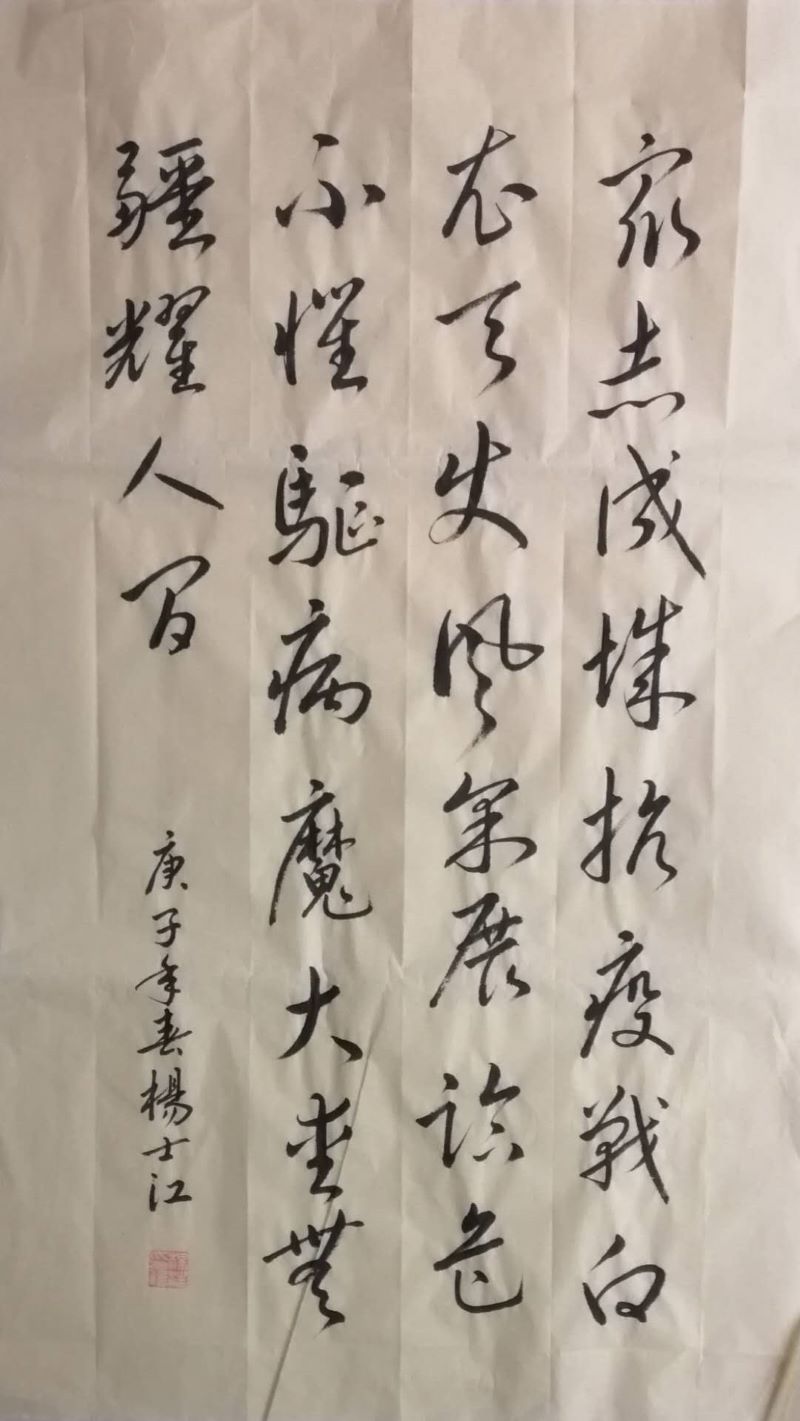 众志成城抗疫战白
衣天使风采展临危
不惧驱病魔大爱无
疆耀人间
庚子年春杨士江